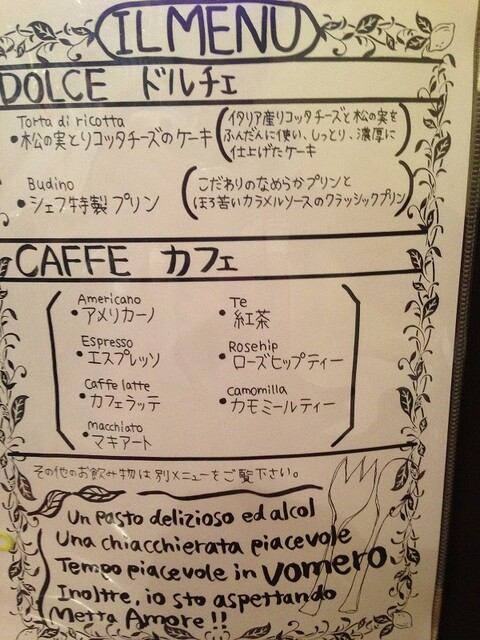 IL MENU
DOLCE ドルチェ
Torta di ricotta
•松の実とリコッタチーズのケーキ
(イタリア産リコッタチーズと松の実を
ふんだんに使い、しっとり、濃厚に
仕上げたケーキ)
Budino
•シェフ特製プリン
(こだわりのなめらかプリンと
ほろ苦いカラメルソースのクラッシックプリン)
CAFFE カフェ
Americano
•アメリカーノ
Espresso
•エスプレッソ
Caffe latte
•カフェラッテ
macchiato
•マキアート
Te
•紅茶
Rosehip
•ローズヒップティー
camomilla
•カモミールティー
その他のお飲み物は別メニューをご覧下さい。
Un pasto delizioso ed alcol
Una chiacchierata piacevole
Tempo piacevole in Vomero.
Inoltre, io sto aspettando
Metta Amore!!